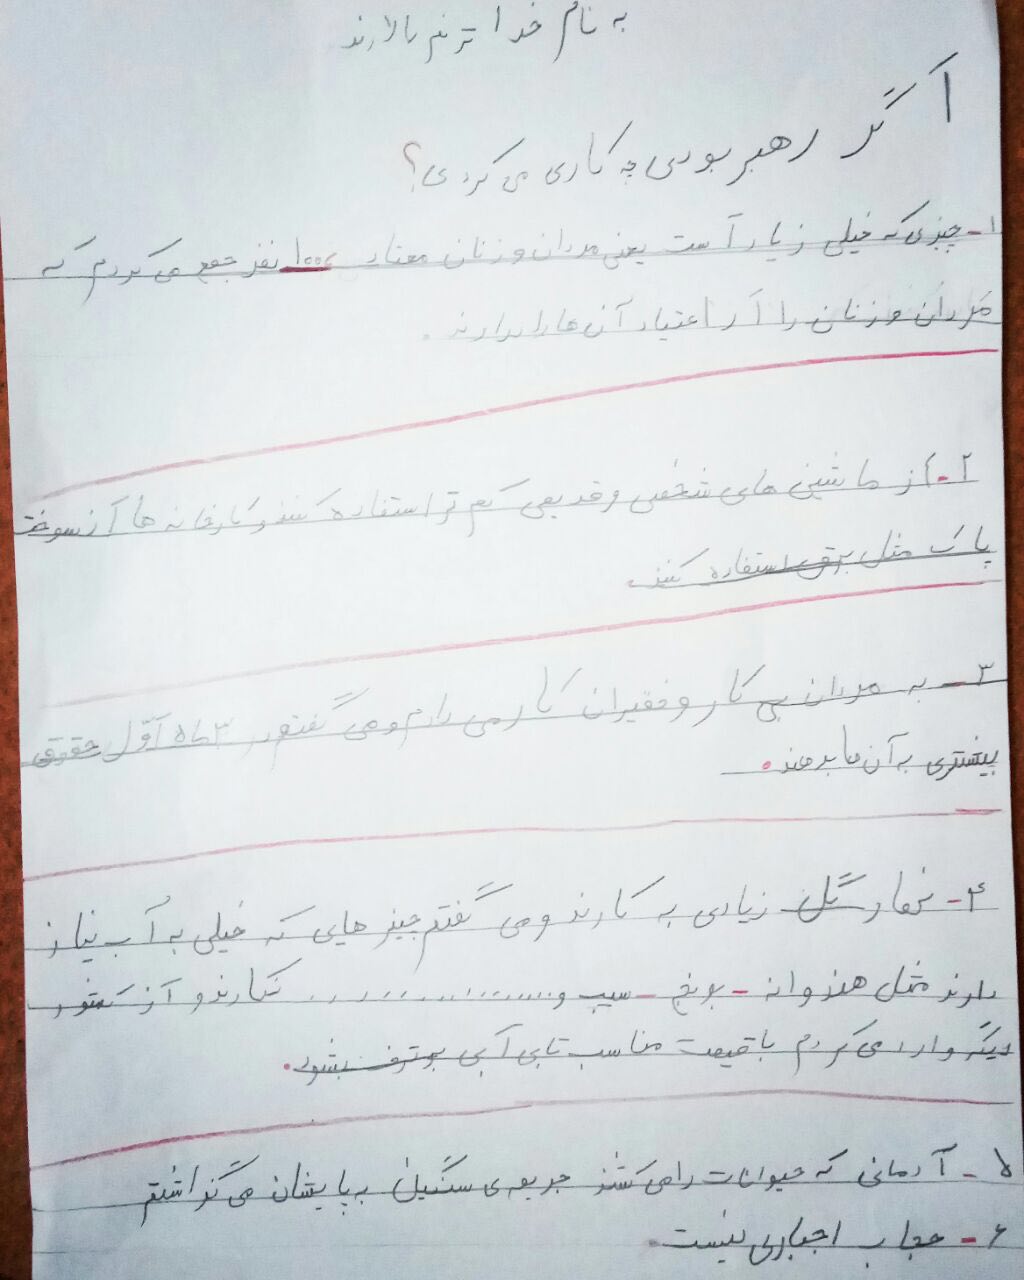 به نام خدا ترنم بالارند
اگر رهبر بودی چه کاری می کردی؟
۱- چیزی که خیلی زیاد آست یعنی مردان و زنان معتاد ۱۰۰۰ نفر جمع می کردم که
مردان و زنان را آز اعتیاد آن ها را بدارند.
۲- آز ماشینی های شخصی و قدیمی کم تر استفاده کنند و کارخانه ها آز سوخت
پاک مثل برق استفاده کنند.
۳- به مردان بی کار و فقیران کار می دادم و می گفتم در ۳ ماه آوّل حقوق
بیشتری به آن ها بدهند.
۴- گل زیادی به کارند و می گفتم چیز هایی که خیلی به آب نیاز
دارند مثل هندوانه - برنج - سیب و............... نکارند و آز کشور
دیگه وارد می کردم با قیمت مناسب تا بی آبی برترف بشود.
۵- آدمانی که حیوانات را می کشند جریمه ی سنگین به پایشان می گذاشتم
۶- حجاب اجباری نیست.